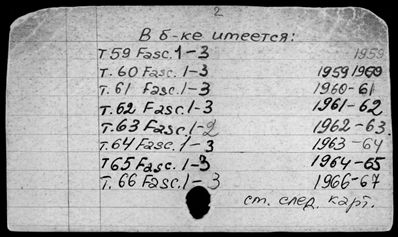 2
В б-ке имеется:
Т.59 Fasc. 1-3 1959
Т.60 Fasc. 1-3 1959 1960
Т.61 Fasc. 1-3 1960-61
Т.62 Fasc. 1-3 1961-62
Т.63 Fasc. 1-2 1962-63
Т.64 Fasc. 1-3 1963-64
Т.65 Fasc. 1-3 1964-65
Т.66 Fasc. 1-3 1966-67
ст. след. карт.